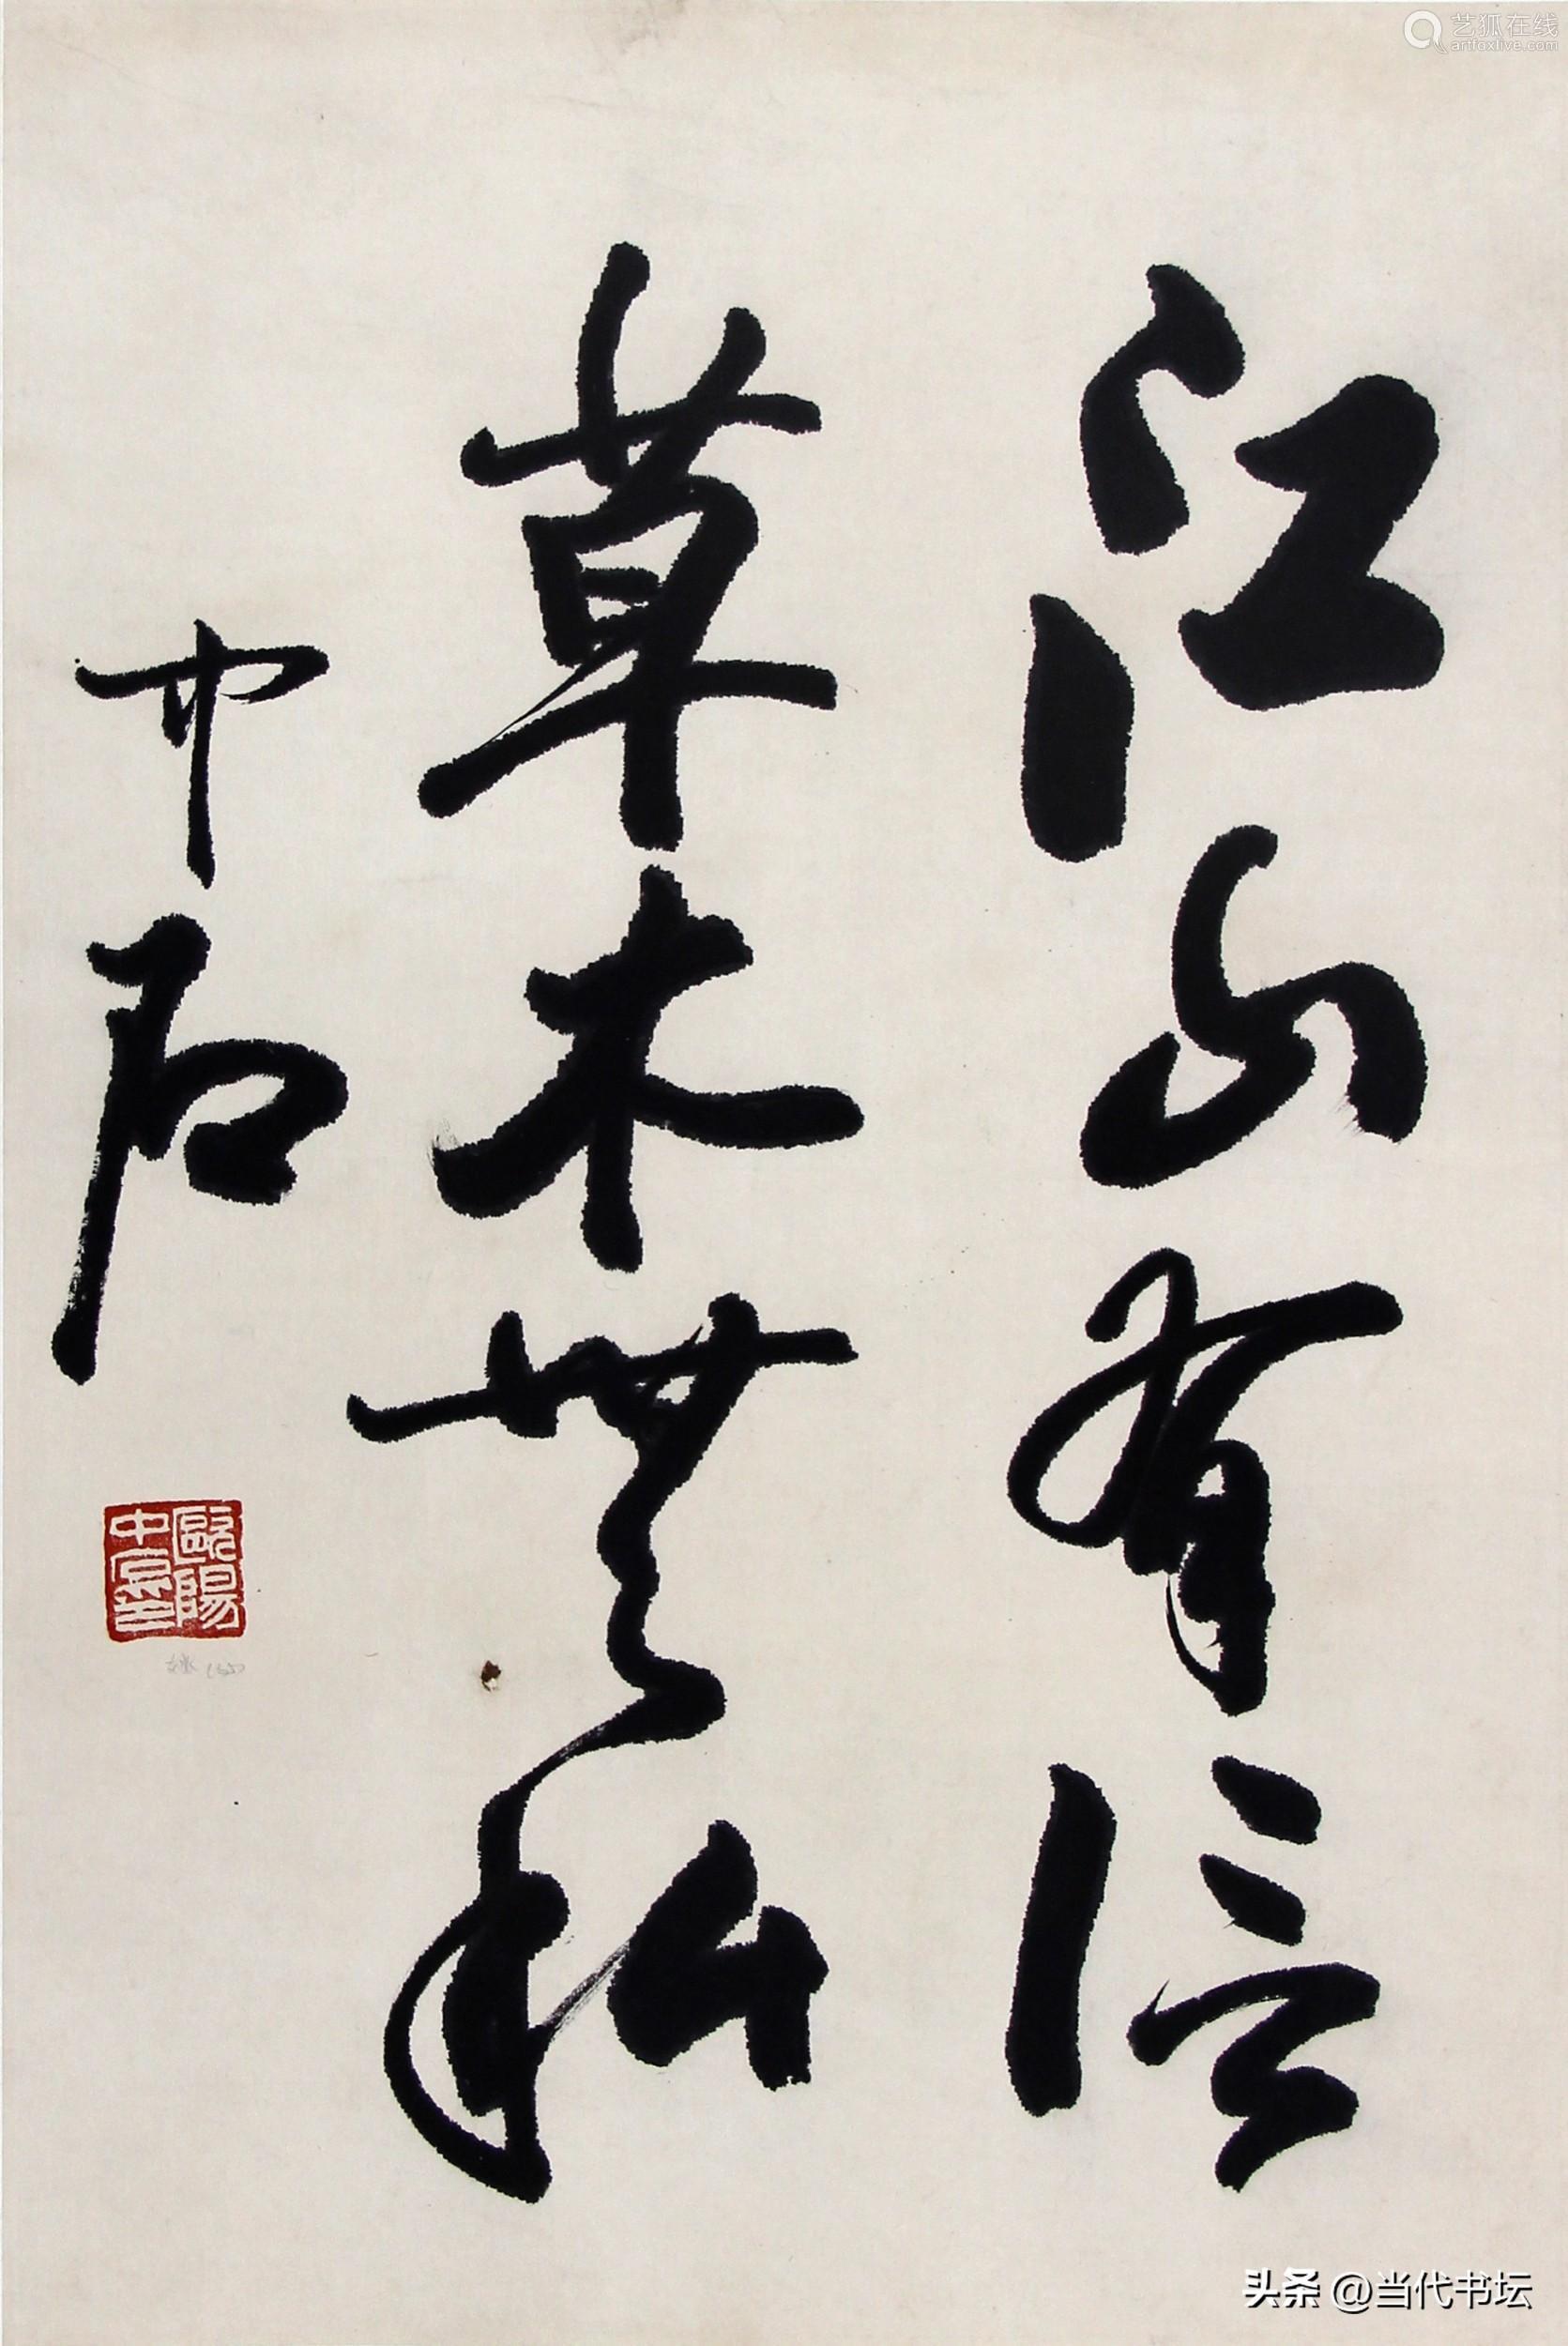 江山有信
草木無私
中石
歐陽中石印
艺狐在线
artfoxlive.com
头条 @当代书坛